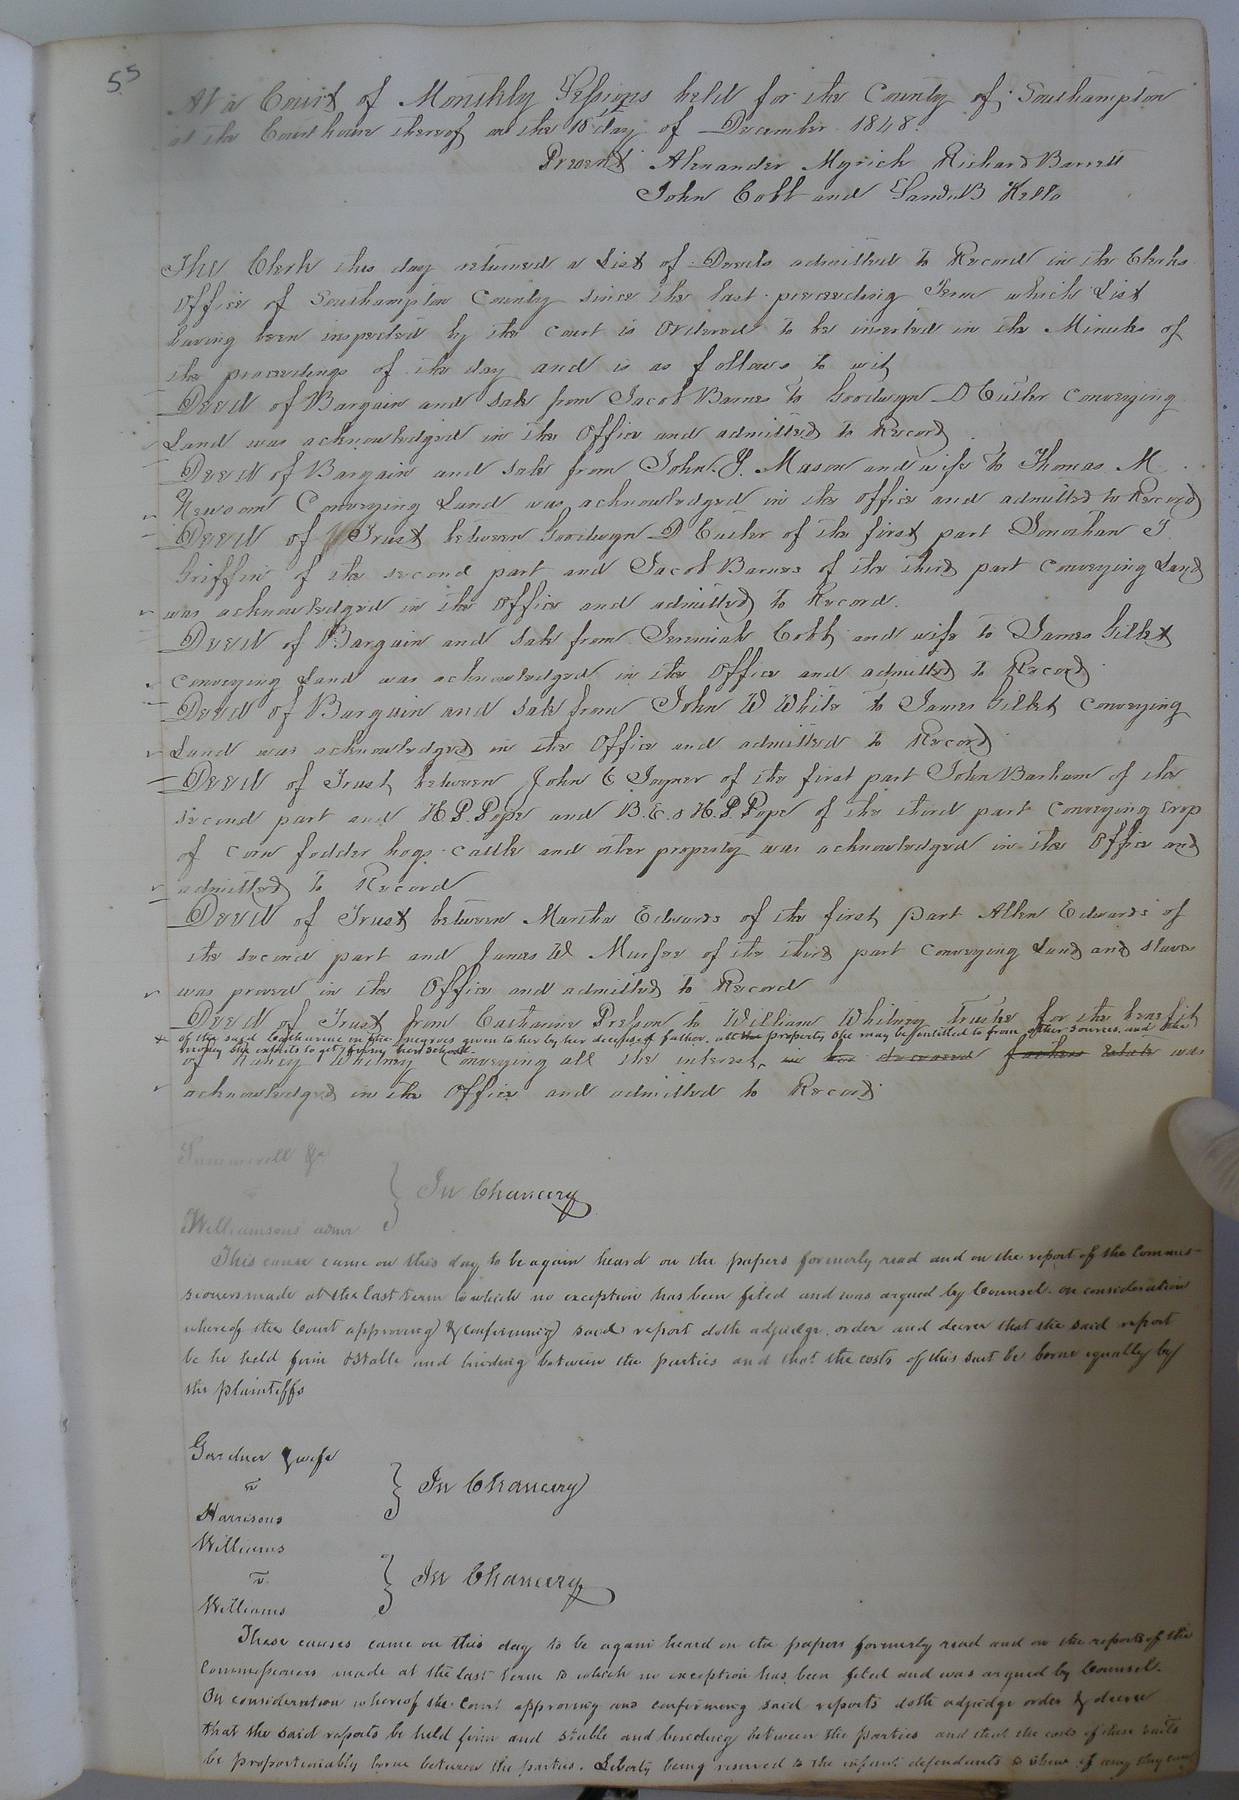 55
At a Court of Monthly Sessions held for the County of Southampton
at the Courthouse thereof on the 18th day of December 1848.
Present Alexander Myrick Richard Barrett
John Cobb and B Kello
The Clerk this day returned a List of Deeds admitted to Record in the Clerks
Office of Southampton County since the last preceeding Term which List
having been inspected by the Court is Ordered to be inserted in the Minutes of
the proceedings of the day and is as follows to wit
Deed of Bargain and Sale from Jacob Barnes to Goodwyn D Cutler conveying
Land was acknowledged in the Office and admitted to Record
Deed of Bargain and Sale from John Y. Mason and wife to Thomas M
Newsom Conveying Land was acknowledged in the office and admitted to Record
Deed of Trust between Goodwyn D Cutler of the first part Jonathan T.
Griffin of the second part and Jacob Barnes of the third part conveying Land
was acknowledged in the Office and admitted to Record.
Deed of Bargain and Sale from Jeremiah Cobb and wife to James Gillet
conveying Land was acknowledged in the Office and admitted to Record
Deed of Bargain and Sale from John W White to James Gillet conveying
Land was acknowledged in the Office and admitted to Record
Deed of Trust between John E Joyner of the first part John Barham of the
second part and H. P. Pope and B. E. & H. P. Pope of the third part conveying crop
of corn fodder hogs cattle and other property was acknowledged in the Office and
admitted to Record
Deed of Trust between Martha Edwards of the first part Allen Edwards of
the second part and James W Murfee of the third part conveying Land and slaves
was proved in the Office and admitted to Record
Deed of Trust from Catharine Pretson to William Whitney Trustee for the benefit
of the said Catharine in the negroes given to her by her deceased father, all the property she may be entitled to from other sources, and the
money she expects to get from her school
of Nancy Whitney Conveying all the interest, in her deceased fathers Estate was
acknowledged in the Office and admitted to Record
Summerell &c
v
Williamsons admr } In Chancery
This cause came on this day to be again heard on the papers formerly read and on the report of the Commis-
sioners made at the last term to which no exception has been filed and was argued by Counsel. on consideration
whereof the Court approving & confirming said report doth adjudge, order and decree that the said report
be he held firm & stable and binding between the parties and that the costs of this suit be borne equally by
the plaintiffs
Gardner & wife
v
Harrisons } In Chancery
Williams
v.
Williams } In Chancery
These causes came on this day to be again heard on the papers formerly read and on the reports of the
Commissioners made at the last term to which no exception has been filed and was argued by Counsel.
On consideration whereof the Court approving and confirming said reports doth adjudge order & decree
that the said reports be held firm and stable and binding between the parties and that the costs of these suits
be proportionably borne between the parties. Liberty being reserved to the infant defendants to shew if any they can